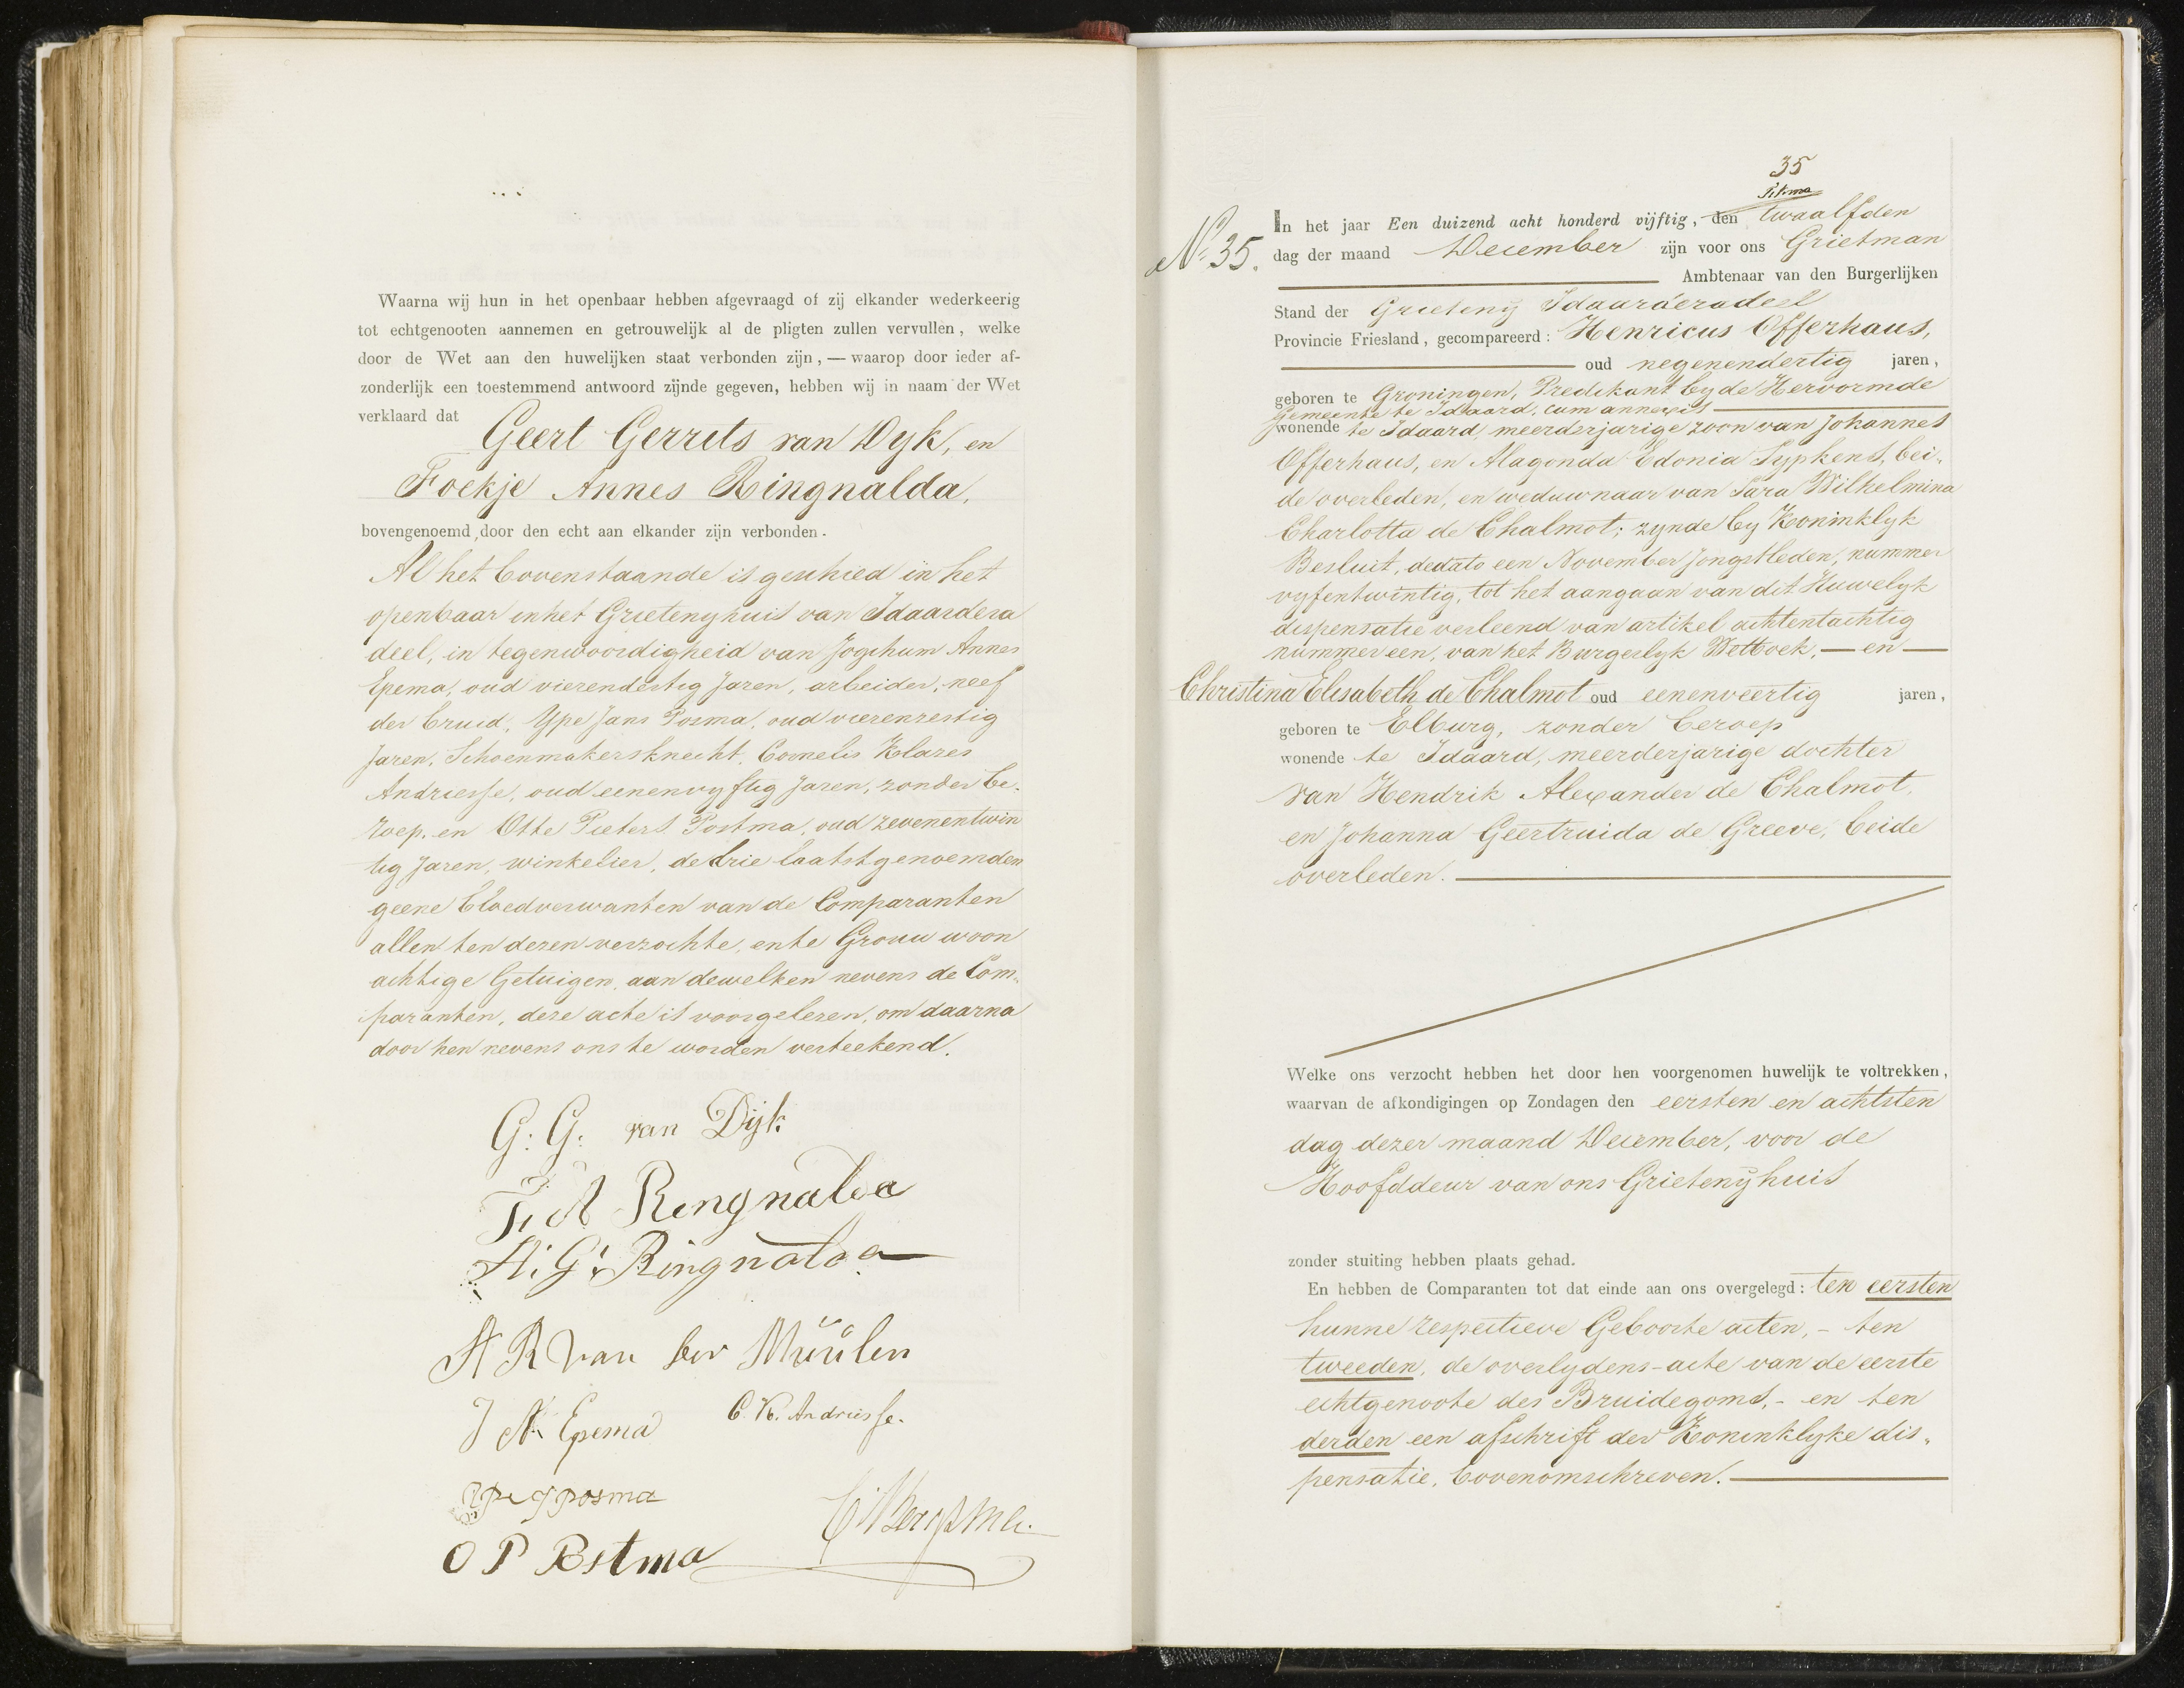 Waarna wij hun in het openbaar hebben afgevraagd of zij elkander wederkeerig
tot echtgenooten aannemen en getrouwelijk al de pligten zullen vervullen, welke
door de Wet aan den huwelijken staat verbonden zijn, — waarop door ieder af-
zonderlijk een toestemmend antwoord zijnde gegeven, hebben wij in naam der Wet
verklaard dat
Geert Gerrits van Dyk, en
Foekje Annes Ringnalda,
bovengenoemd, door den echt aan elkander zijn verbonden.
Al het bovenstaande is geschied in het
openbaar in het Grietenyhuis van Idaardera
deel, in tegenwoordigheid van Jogchum Annes
Epema, oud vierendertig Jaren, arbeider, neef
der bruid, Ype Jans Posma, oud vierenzestig
Jaren, Schoenmakersknecht, Cornelis Klazes
Andriesse, oud eenenvyftig Jaren, zonder be-
roep, en Otte Pieters Postma, oud zevenentwin
tig Jaren, winkelier, de drie laatstgenoemden
geene bloedverwanten van de Comparanten
allen ten dezen verzochte, en te Grouw woon
achtige Getuigen, aan dewelken nevens de Com-
paranten, deze acte is voorgelezen, om daarna
door hen nevens ons te worden verteekend.
G: G: van Dijk
F: A Ringnalda
A: G: Ringnalda
A R van der Müülen
J A Epema
C. K. Andriesse.
Ype J posma
O P Postma
35
In het jaar Een duizend acht honderd vijftig, den twaalfden
No. 35.
dag der maand December zijn voor ons Grietman
Ambtenaar van den Burgerlijken
Stand der Grieteny Idaarderadeel
Provincie Friesland, gecompareerd: Henricus Offerhaus,
oud negenendertig jaren,
geboren te Groningen, Predikant by de Hervormde
Gemeente te Idaard, cum annexis
wonende te Idaard, meerderjarige zoon van Johannes
Offerhaus, en Alagonda Edonia Sypkens, bei-
de overleden, en weduwnaar van Sara Wilhelmina
Charlotta de Chalmot; zynde by Koninklyk
Besluit, dedato een November jongstleden, nummer
vyfentwintig, tot het aangaan van dit Huwelyk
dispensatie verleend van artikel achtentachtig
nummer een, van het Burgerlyk Wetboek, — en —
Christina Elisabeth de Chalmot oud eenenveertig jaren,
geboren te Elburg, zonder beroep
wonende te Idaard, meerderjarige dochter
van Hendrik Alexander de Chalmot,
en Johanna Geertruida de Greeve, beide
overleden.
Welke ons verzocht hebben het door hen voorgenomen huwelijk te voltrekken,
waarvan de afkondigingen op Zondagen den eersten en achtsten
dag dezer maand December, voor de
Hoofddeur van ons Grietenyhuis
zonder stuiting hebben plaats gehad.
En hebben de Comparanten tot dat einde aan ons overgelegd: ten eersten
hunne respectieve Geboorte acten, - ten
tweeden, de overlydens-acte van de eerste
echtgenoote des Bruidegoms, - en ten
derden een afschrift der Koninklyke dis-
pensatie, bovenomschreven.